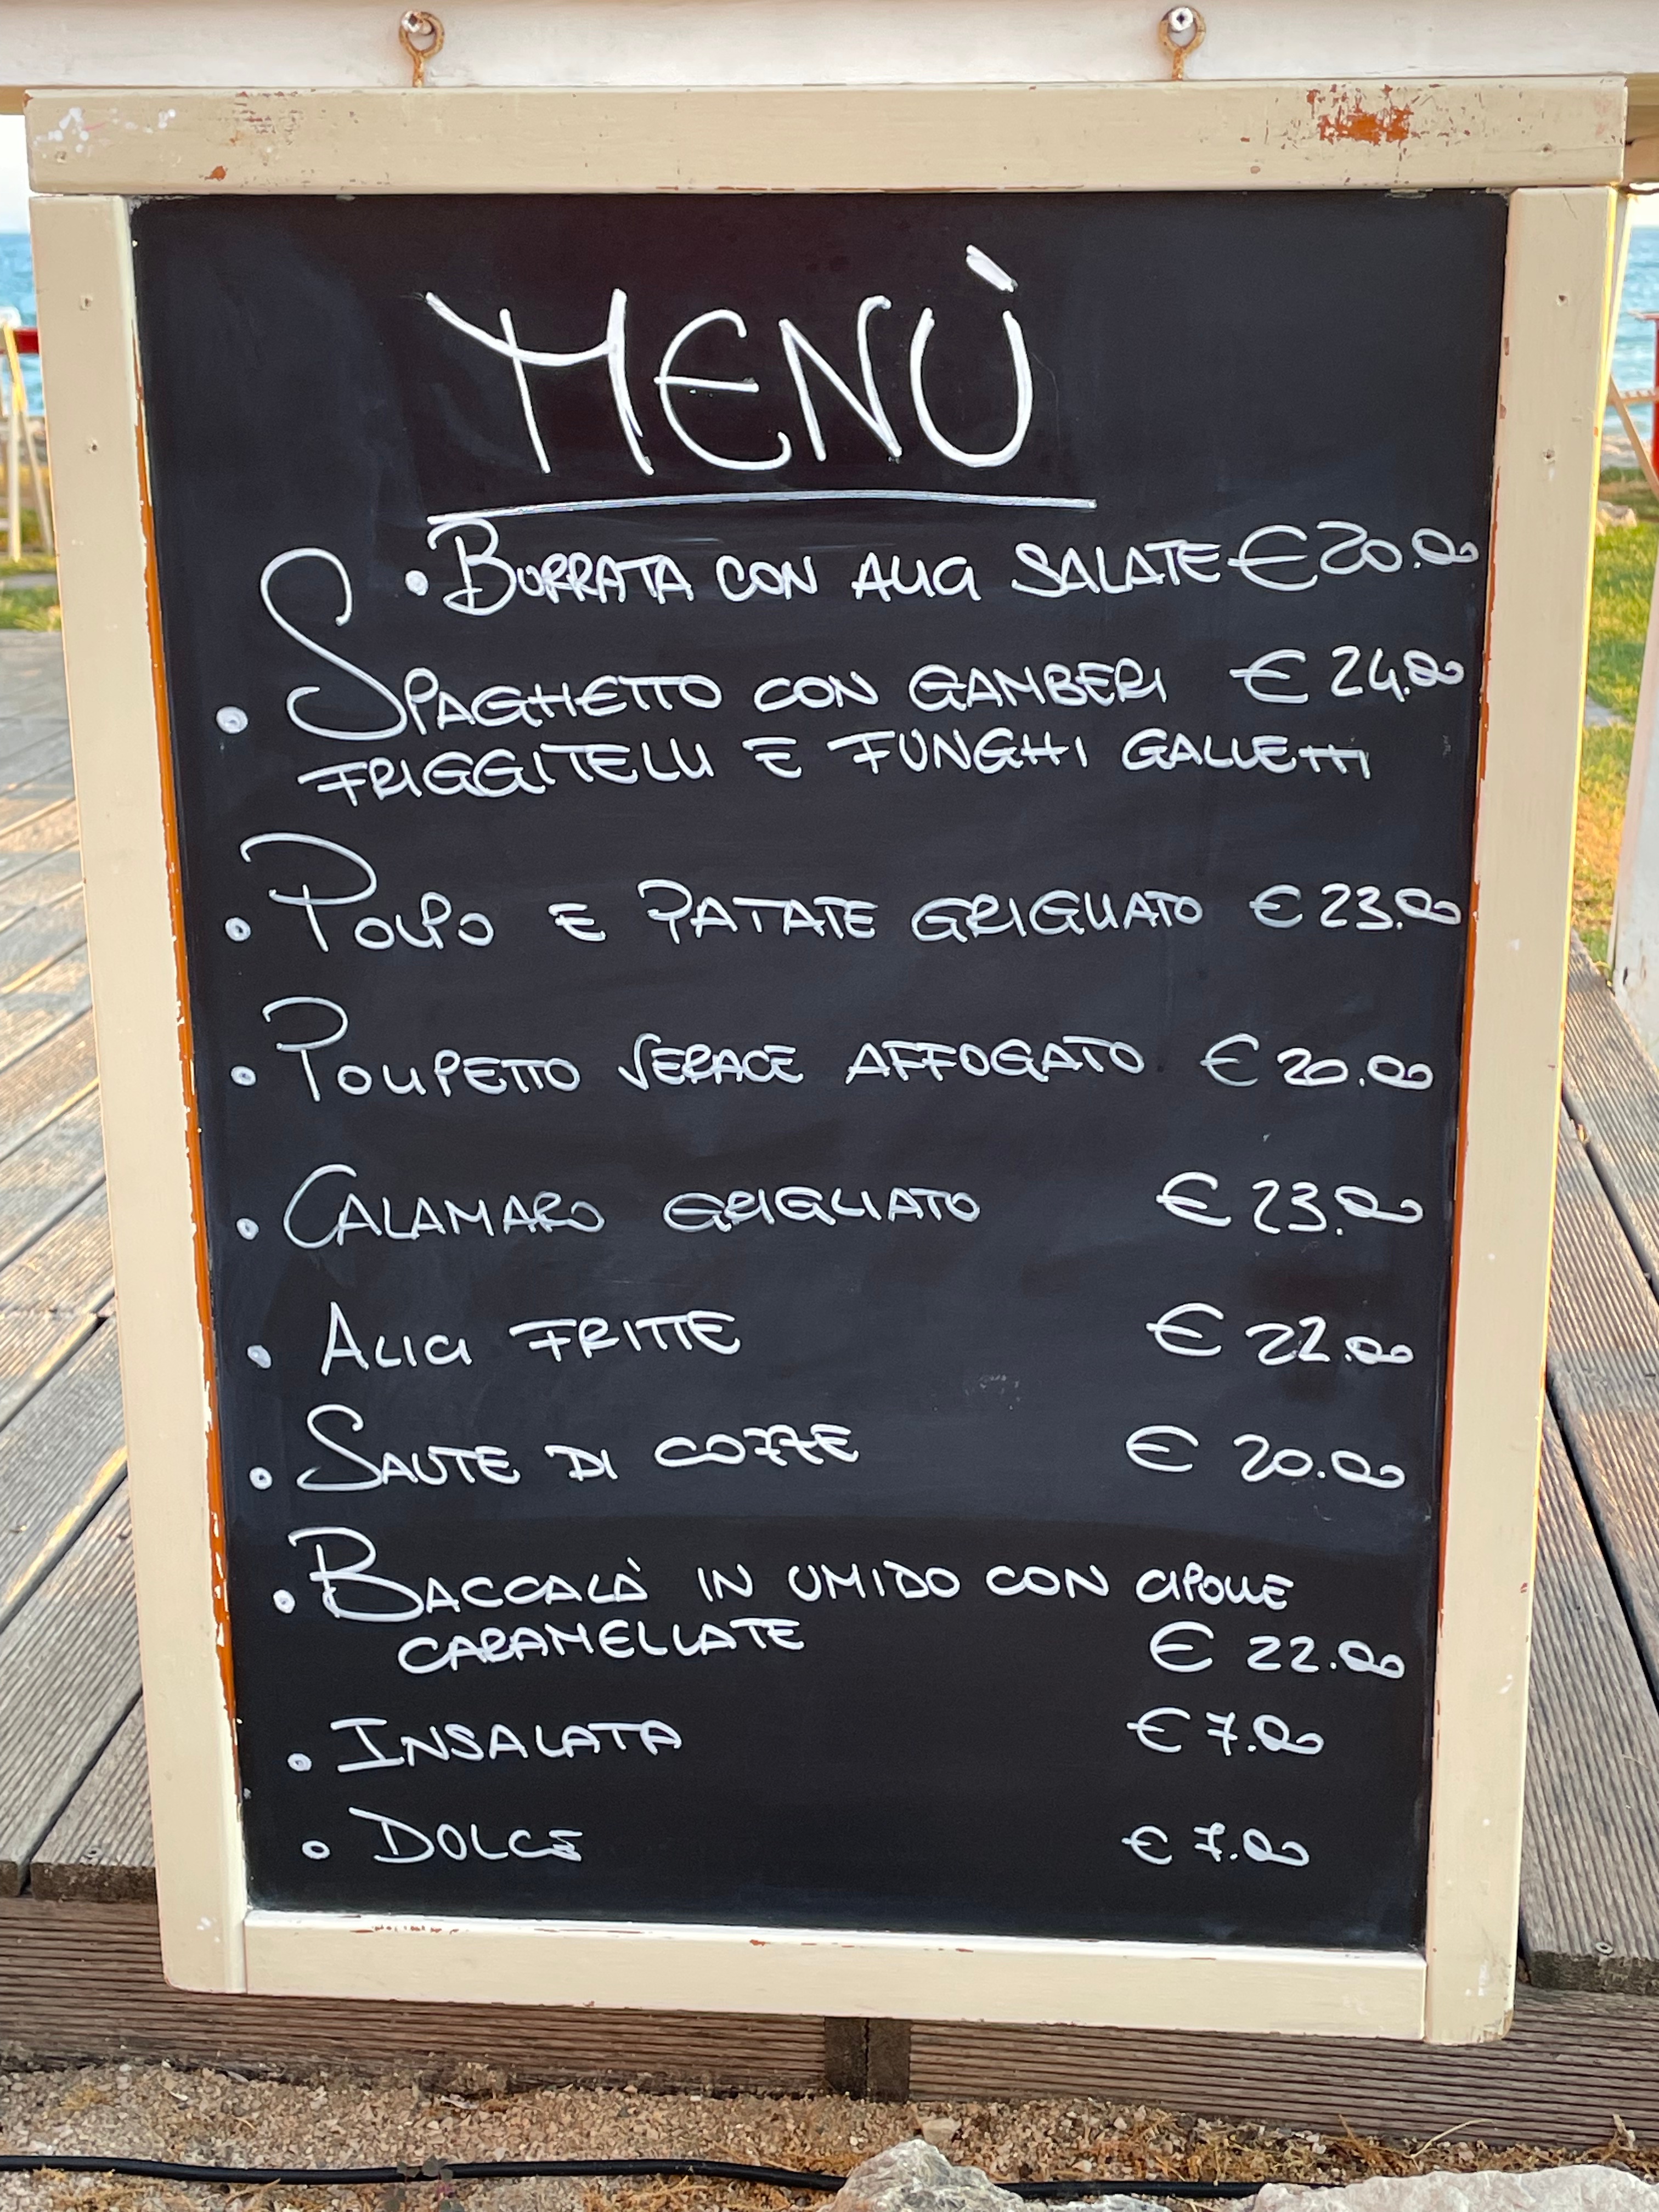 MENÙ
• BURRATA CON ALICI SALATE € 20.00
• SPAGHETTO CON GAMBERI € 24.00
FRIGGITELLI E FUNGHI GALLETTI
• POLPO E PATATE GRIGLIATO € 23.00
• POLIPETTO VERACE AFFOGATO € 20.00
• CALAMARO GRIGLIATO € 23.00
• ALICI FRITTE € 22.00
• SAUTE DI COZZE € 20.00
• BACCALÀ IN UMIDO CON CIPOLLE
CARAMELLATE € 22.00
• INSALATA € 7.00
• DOLCE € 7.00